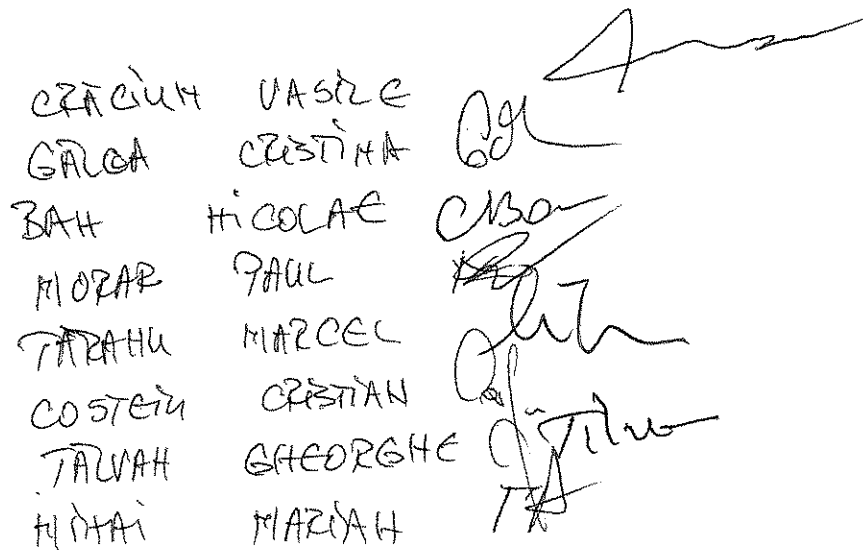 CRĂCIUN VASILE
GÂLEA CRISTINA
BAN NICOLAE
MORAR PAUL
ȚĂRANU MARCEL
COSTEIU CRISTIAN
TALVAN GHEORGHE
MIHAI MARIAN